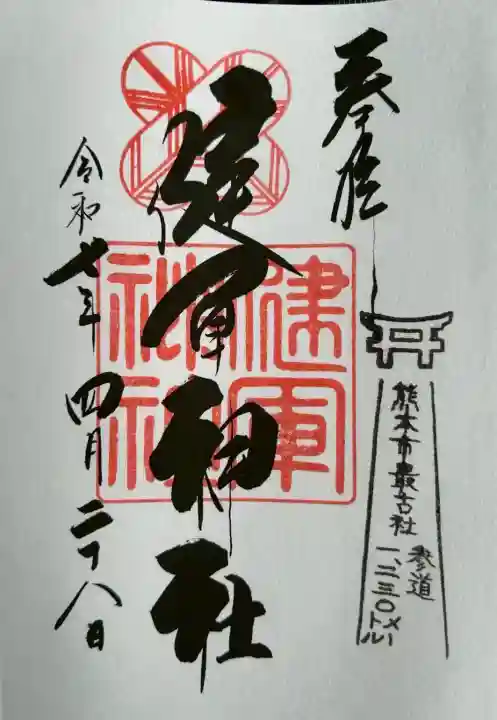 奉拝
熊本市最古社
参道
一、二三〇メートル
健軍神社
健軍神社
令和七年四月二十八日